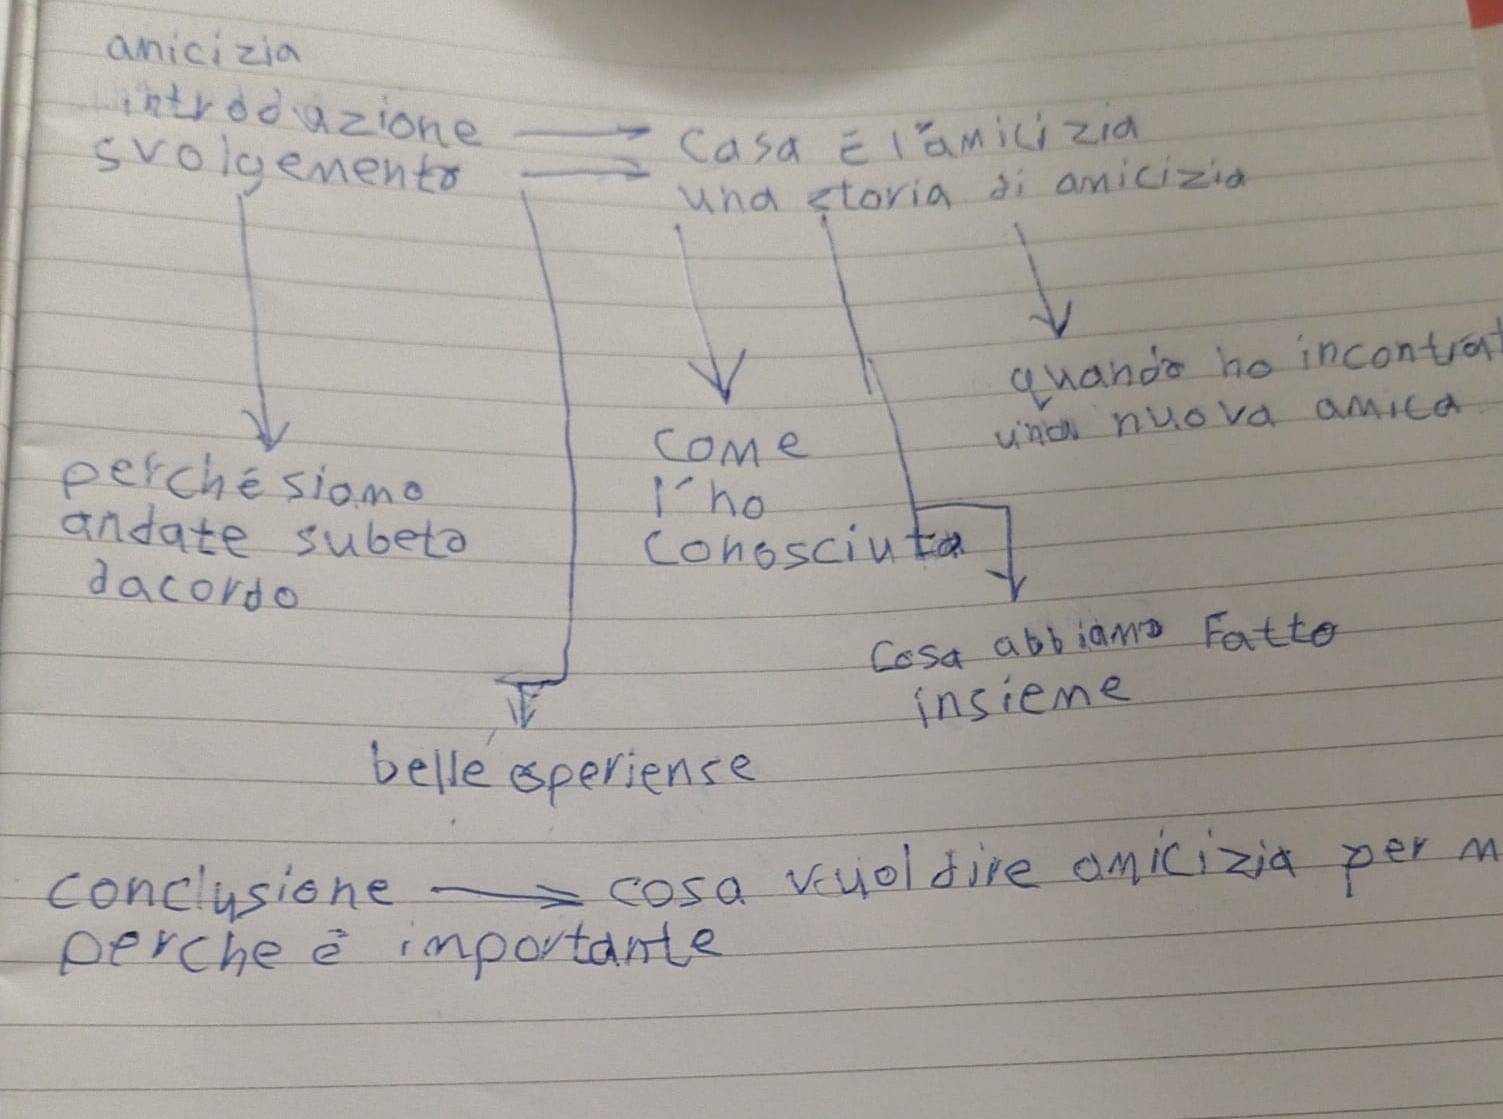 amicizia
introduzione → Casa È l'amicizia
svolgemento → una storia di amicizia
quando ho incontrat
una nuova amica
come
l'ho
conosciuta
perché siamo
andate subeto
dacordo
cosa abbiamo Fatto
insieme
belle esperiense
conclusione → cosa vuol dire amicizia per m
perche è importante